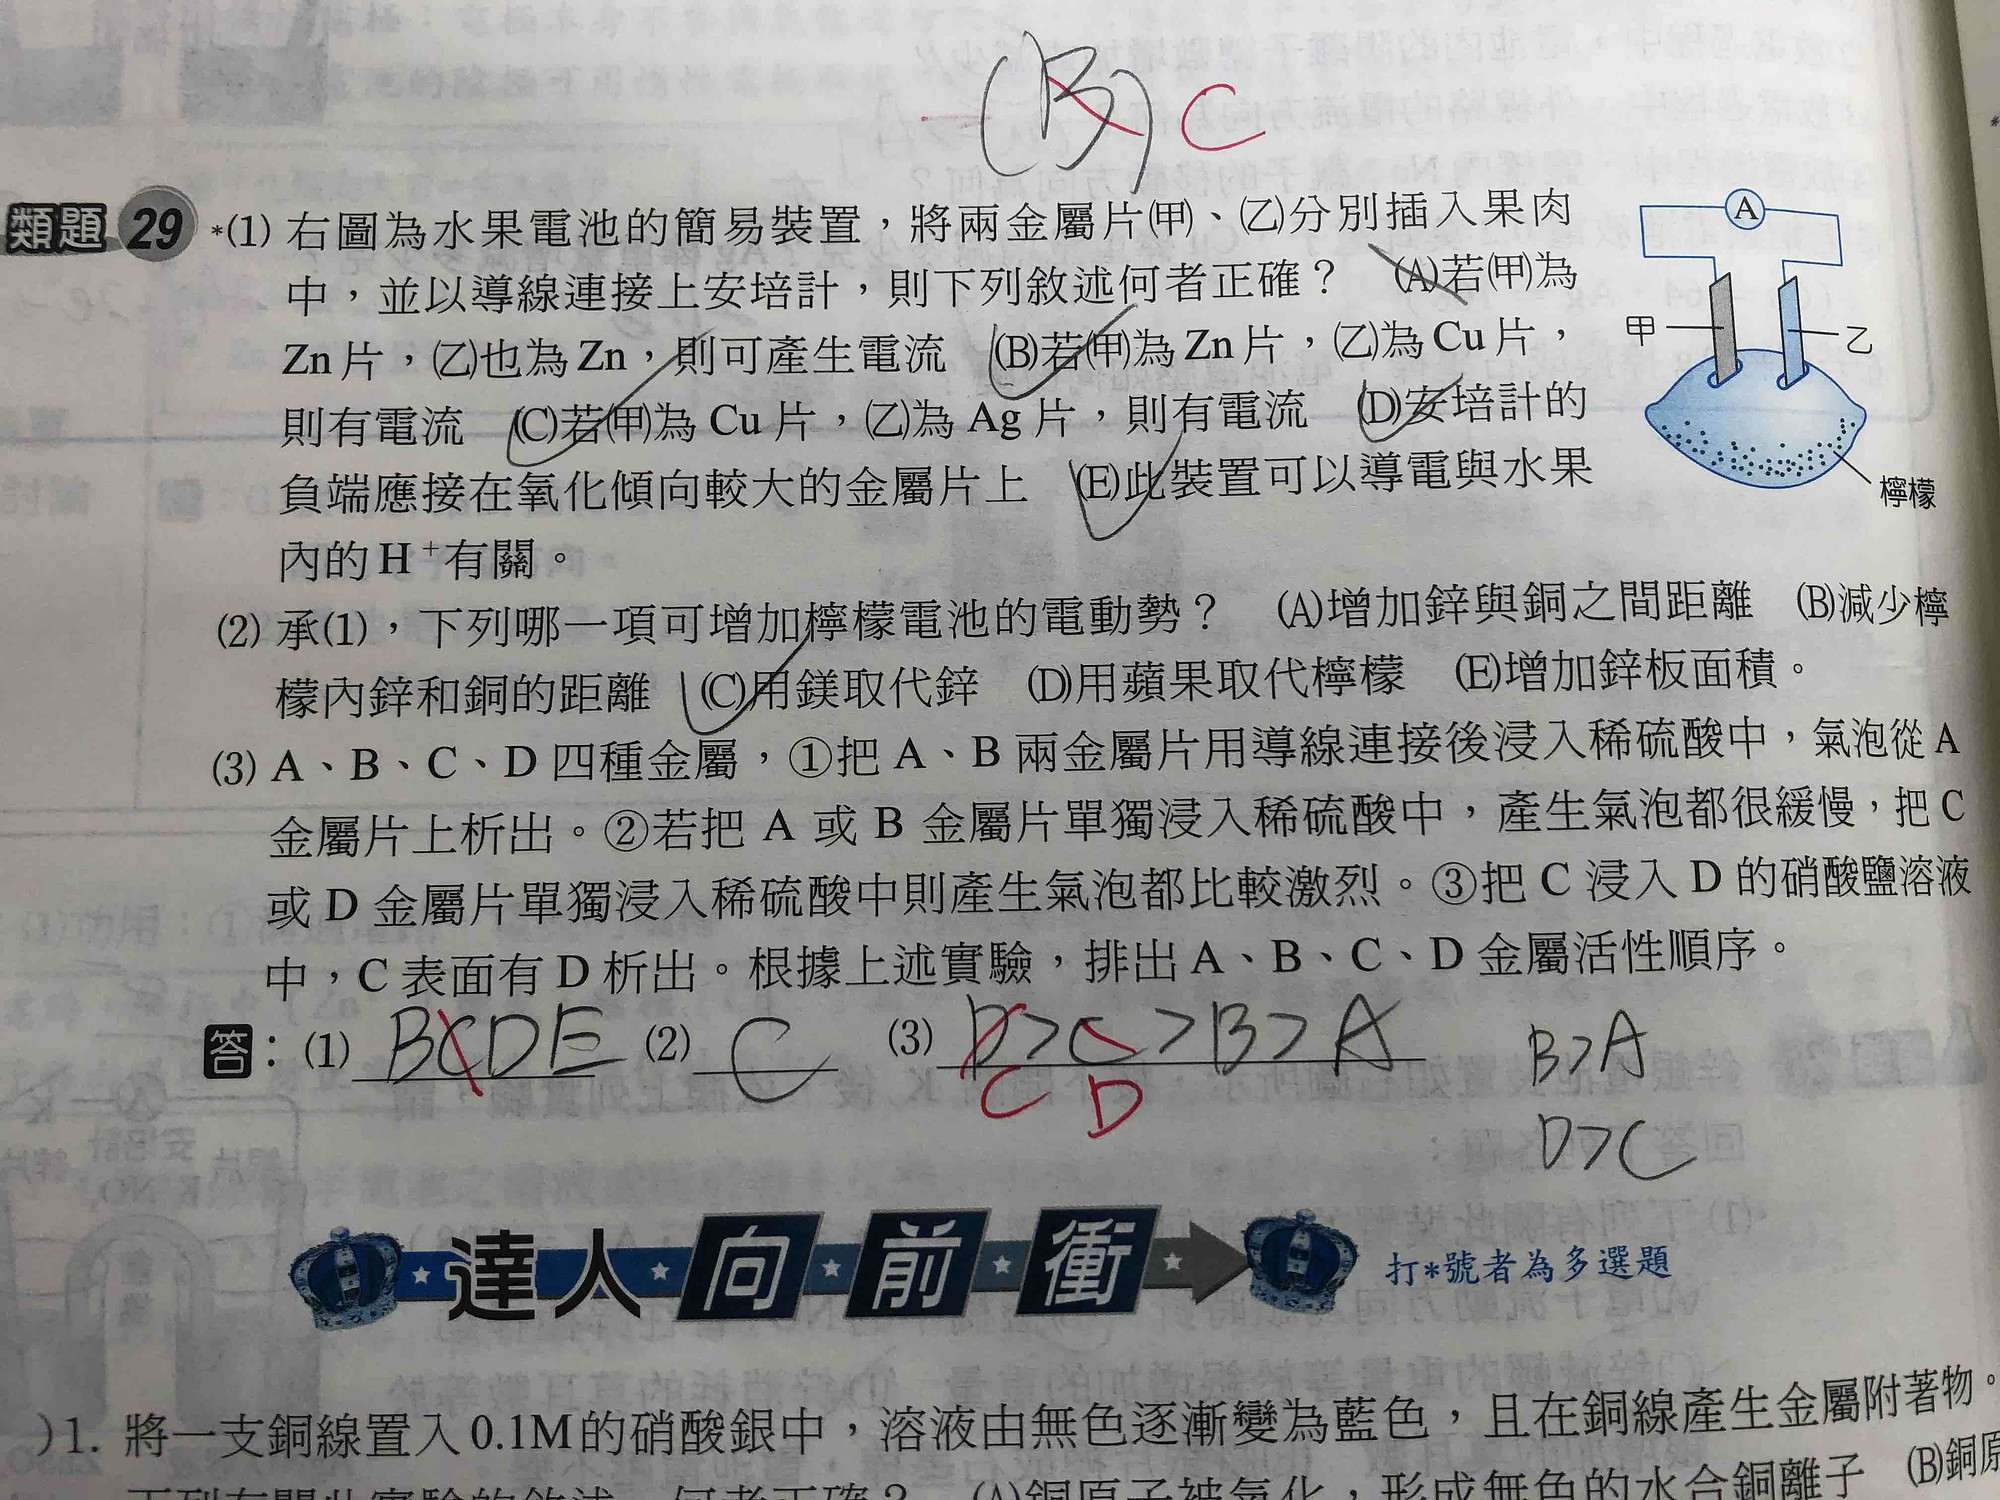 (B) C
類題 29 *(1) 右圖為水果電池的簡易裝置，將兩金屬片(甲)、(乙)分別插入果肉
中，並以導線連接上安培計，則下列敘述何者正確？ (A)若(甲)為
Zn片，(乙)也為Zn，則可產生電流 (B)若(甲)為Zn片，(乙)為Cu片，
則有電流 (C)若(甲)為Cu片，(乙)為Ag片，則有電流 (D)安培計的
負端應接在氧化傾向較大的金屬片上 (E)此裝置可以導電與水果
內的H⁺有關。
A
甲
乙
檸檬
(2) 承(1)，下列哪一項可增加檸檬電池的電動勢？ (A)增加鋅與銅之間距離 (B)減少檸
檬內鋅和銅的距離 (C)用鎂取代鋅 (D)用蘋果取代檸檬 (E)增加鋅板面積。
(3) A、B、C、D四種金屬，①把A、B兩金屬片用導線連接後浸入稀硫酸中，氣泡從A
金屬片上析出。②若把A或B金屬片單獨浸入稀硫酸中，產生氣泡都很緩慢，把C
或D金屬片單獨浸入稀硫酸中則產生氣泡都比較激烈。③把C浸入D的硝酸鹽溶液
中，C表面有D析出。根據上述實驗，排出A、B、C、D金屬活性順序。
答：(1) BCDE (2) C (3) D>C>B>A
C D
B>A
D>C
達人向前衝
打*號者為多選題
)1. 將一支銅線置入0.1M的硝酸銀中，溶液由無色逐漸變為藍色，且在銅線產生金屬附著物。
下列有關此實驗的敘述，何者正確？ (A)銅原子被氧化，形成無色的水合銅離子 (B)銅原